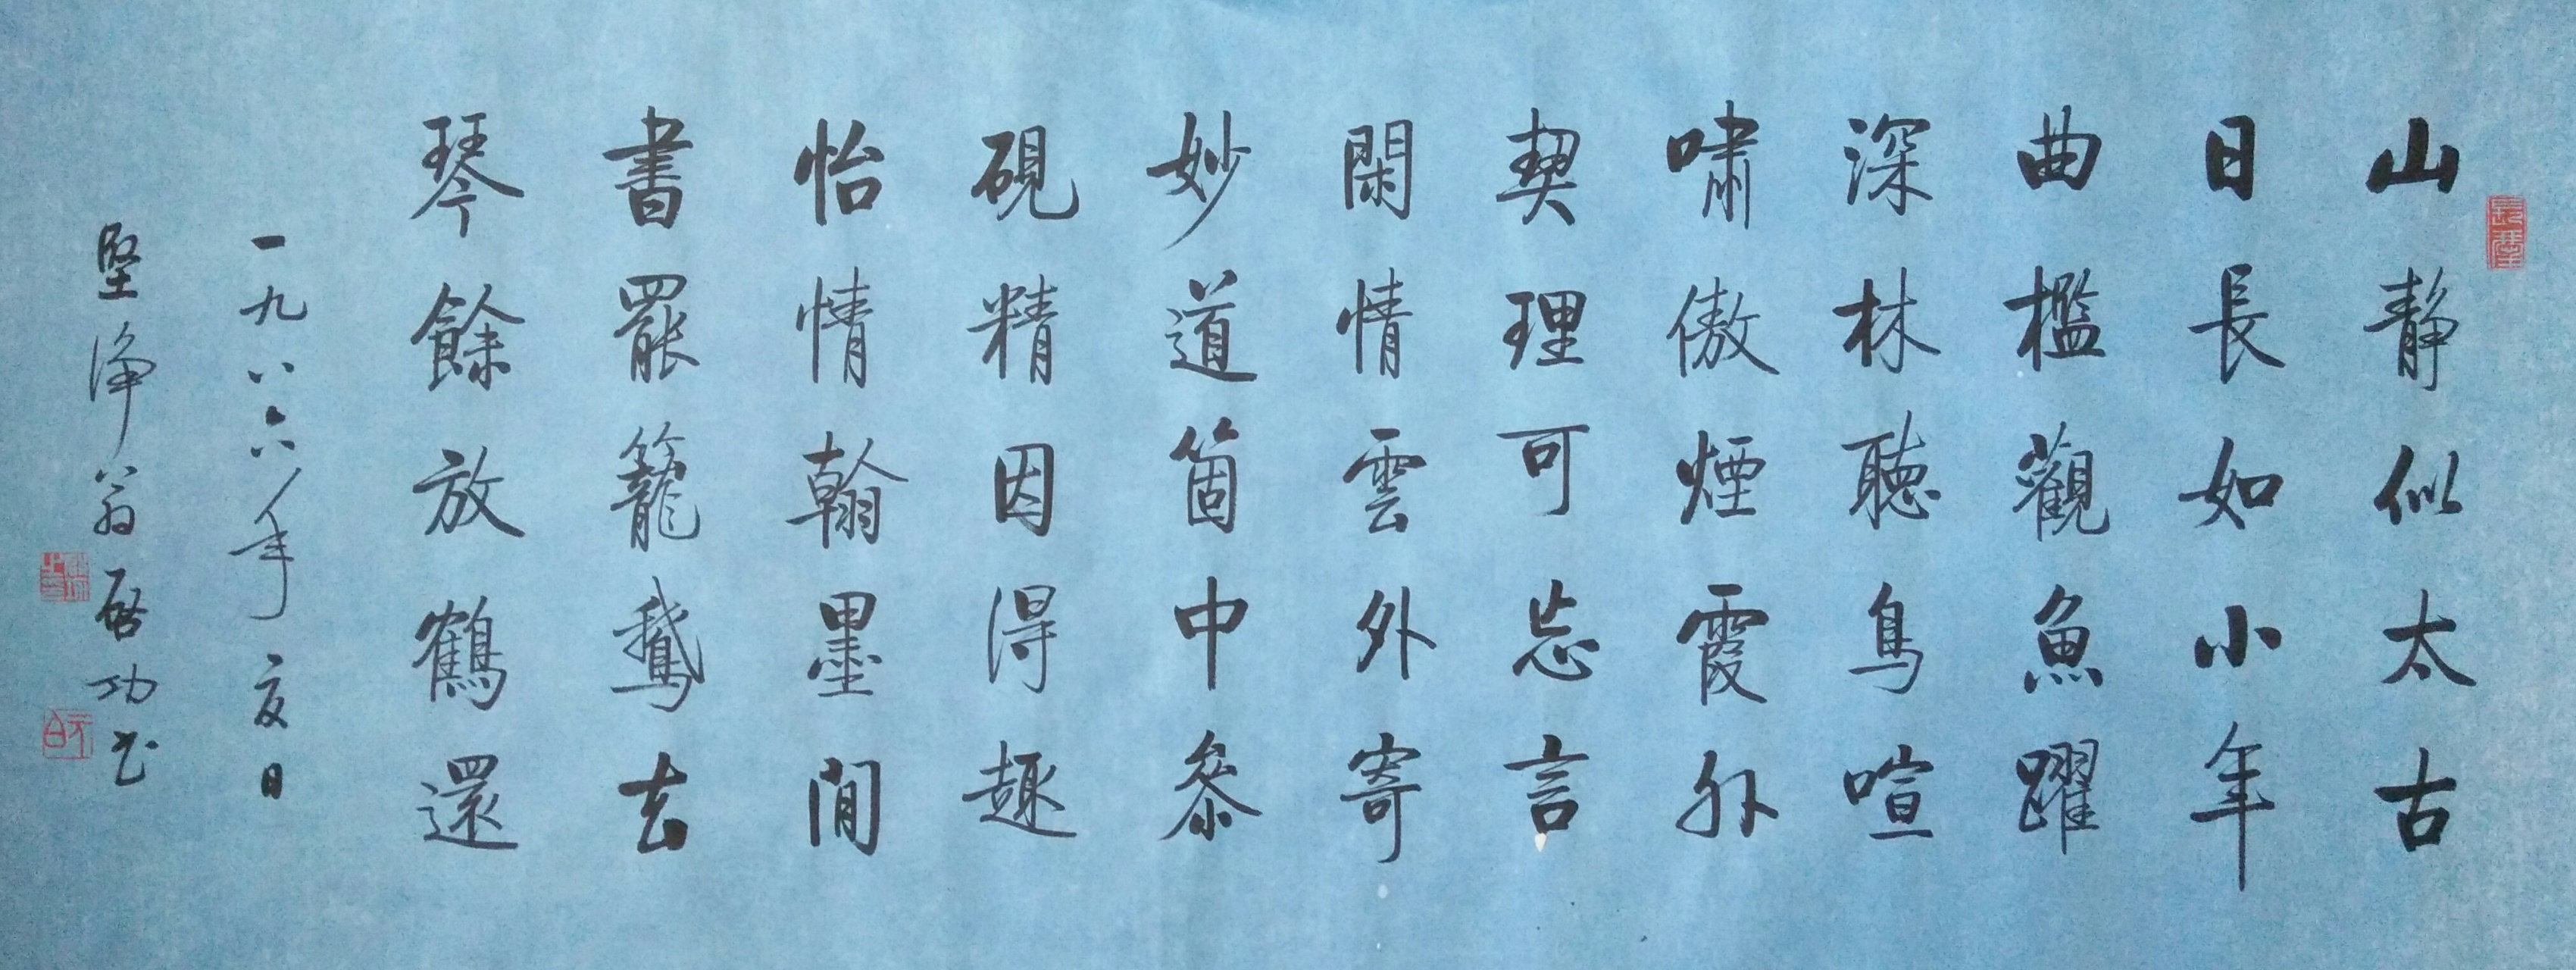 山靜似太古
日長如小年
曲檻觀魚躍
深林聽鳥喧
嘯傲煙霞外
契理可忘言
閑情雲外寄
妙道箇中參
硯精因得趣
怡情翰墨間
書罷籠鵝去
琴餘放鶴還
一九八六年夏日
堅淨翁啓功書